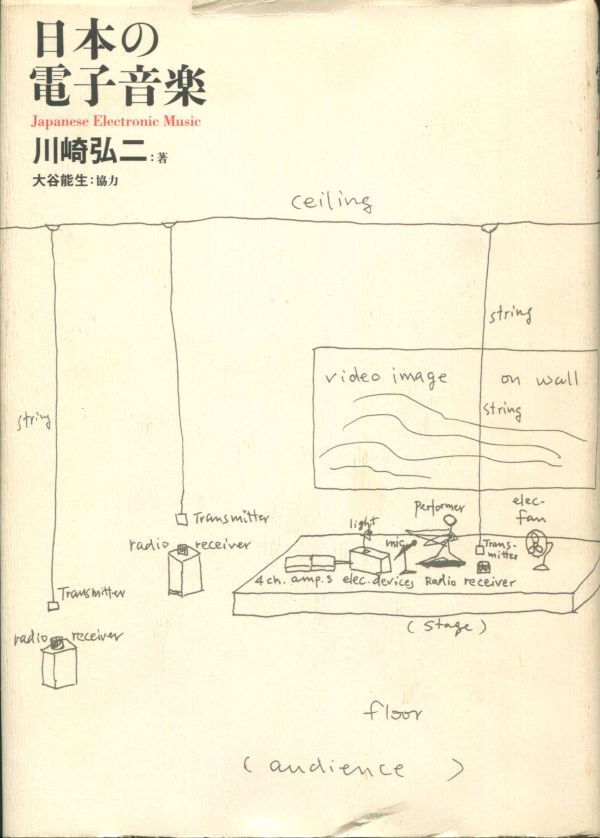 日本の
電子音楽
Japanese Electronic Music
川崎弘二:著
大谷能生:協力
ceiling
string
video image on wall
string
string
Transmitter
radio receiver
Transmitter
radio receiver
light
mic
performer
elec.
fan
Trans-
mitter
4ch. amp.s elec. devices Radio receiver
(stage)
floor
(audience)